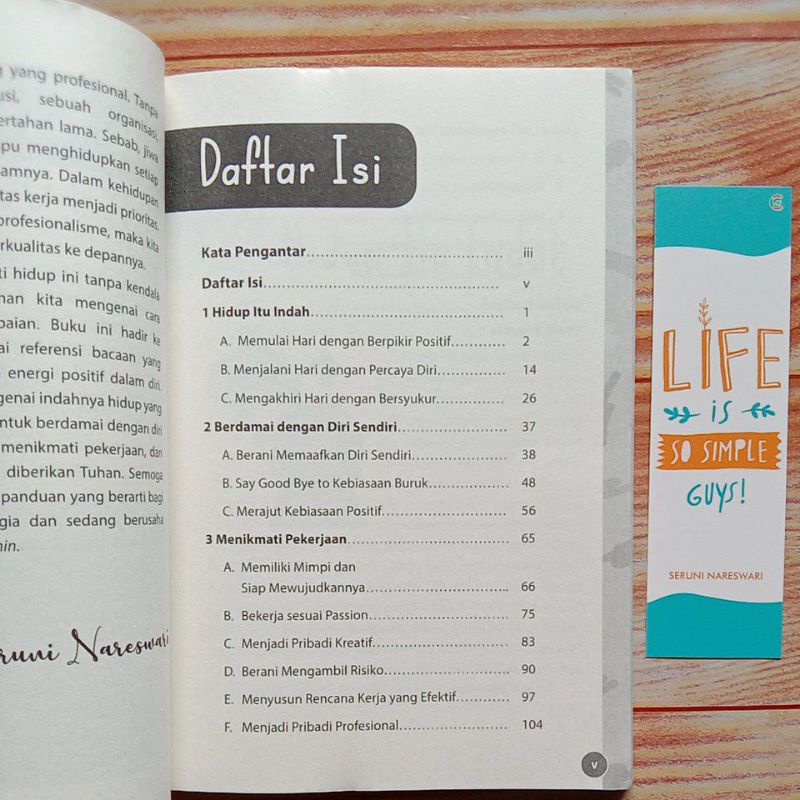 yang profesional. Tanpa
sebuah organisasi,
lama. Sebab, jiwa
menghidupkan setiap
Dalam kehidupan
kerja menjadi prioritas.
profesionalisme, maka kita
ke depannya.
hidup ini tanpa kendala
kita mengenai cara
Buku ini hadir ke
referensi bacaan yang
energi positif dalam diri,
indahnya hidup yang
untuk berdamai dengan diri
menikmati pekerjaan, dan
diberikan Tuhan. Semoga
panduan yang berarti bagi
dan sedang berusaha
Nareswari
Daftar Isi
Kata Pengantar.................................................. iii
Daftar Isi............................................................ v
1 Hidup Itu Indah................................................ 1
A. Memulai Hari dengan Berpikir Positif............ 2
B. Menjalani Hari dengan Percaya Diri............... 14
C. Mengakhiri Hari dengan Bersyukur............... 26
2 Berdamai dengan Diri Sendiri........................... 37
A. Berani Memaafkan Diri Sendiri..................... 38
B. Say Good Bye to Kebiasaan Buruk................. 48
C. Merajut Kebiasaan Positif............................. 56
3 Menikmati Pekerjaan....................................... 65
A. Memiliki Mimpi dan
Siap Mewujudkannya.................................. 66
B. Bekerja sesuai Passion................................. 75
C. Menjadi Pribadi Kreatif................................ 83
D. Berani Mengambil Risiko.............................. 90
E. Menyusun Rencana Kerja yang Efektif........... 97
F. Menjadi Pribadi Profesional.......................... 104
v
LIFE
is
SO SIMPLE
GUYS!
SERUNI NARESWARI